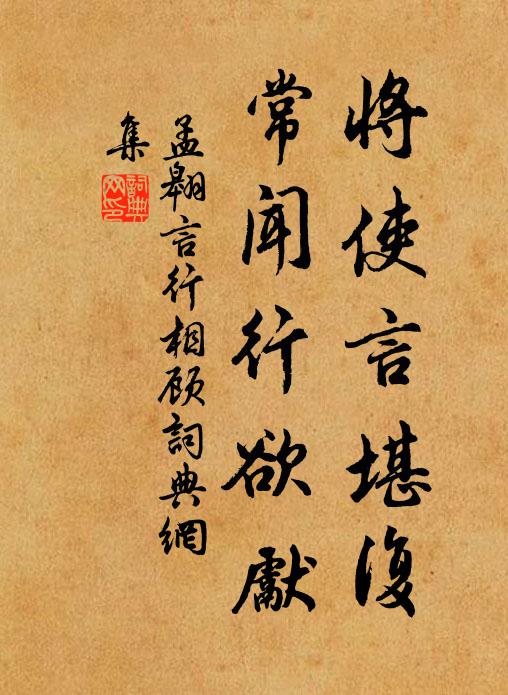 将使言堪復
常闻行欲獻
孟翱言行相顾詞典網
集
詞典
网印